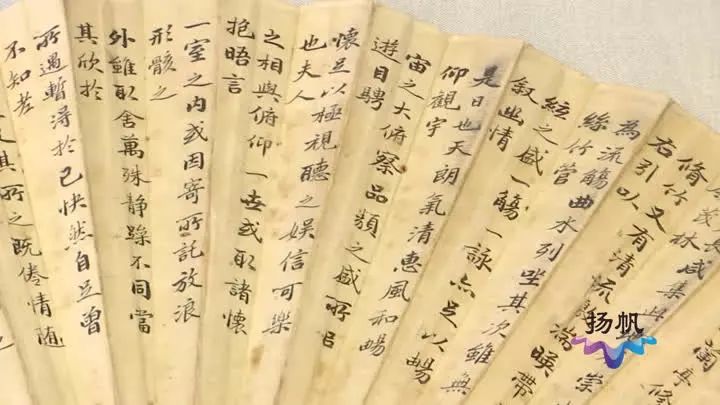 蘭亭修
咸集此
崇
林
脩竹
又有清流
湍暎帶
右引以
為流觴曲水列坐其次雖無
絲竹管
絃之盛一觴一詠亦足以暢
叙幽情
是日也天朗氣清惠風和暢
仰觀宇
宙之大俯察品類之盛所以
遊目騁
懷足以極視聽之娛信可樂
也夫人
之相與俯仰一世或取諸懷
抱晤言
一室之內或因寄所託放浪
形骸之
外雖取舍萬殊靜躁不同當
其欣於
所遇暫得於己快然自足曾
不知老
其所之既倦情隨
扬帆